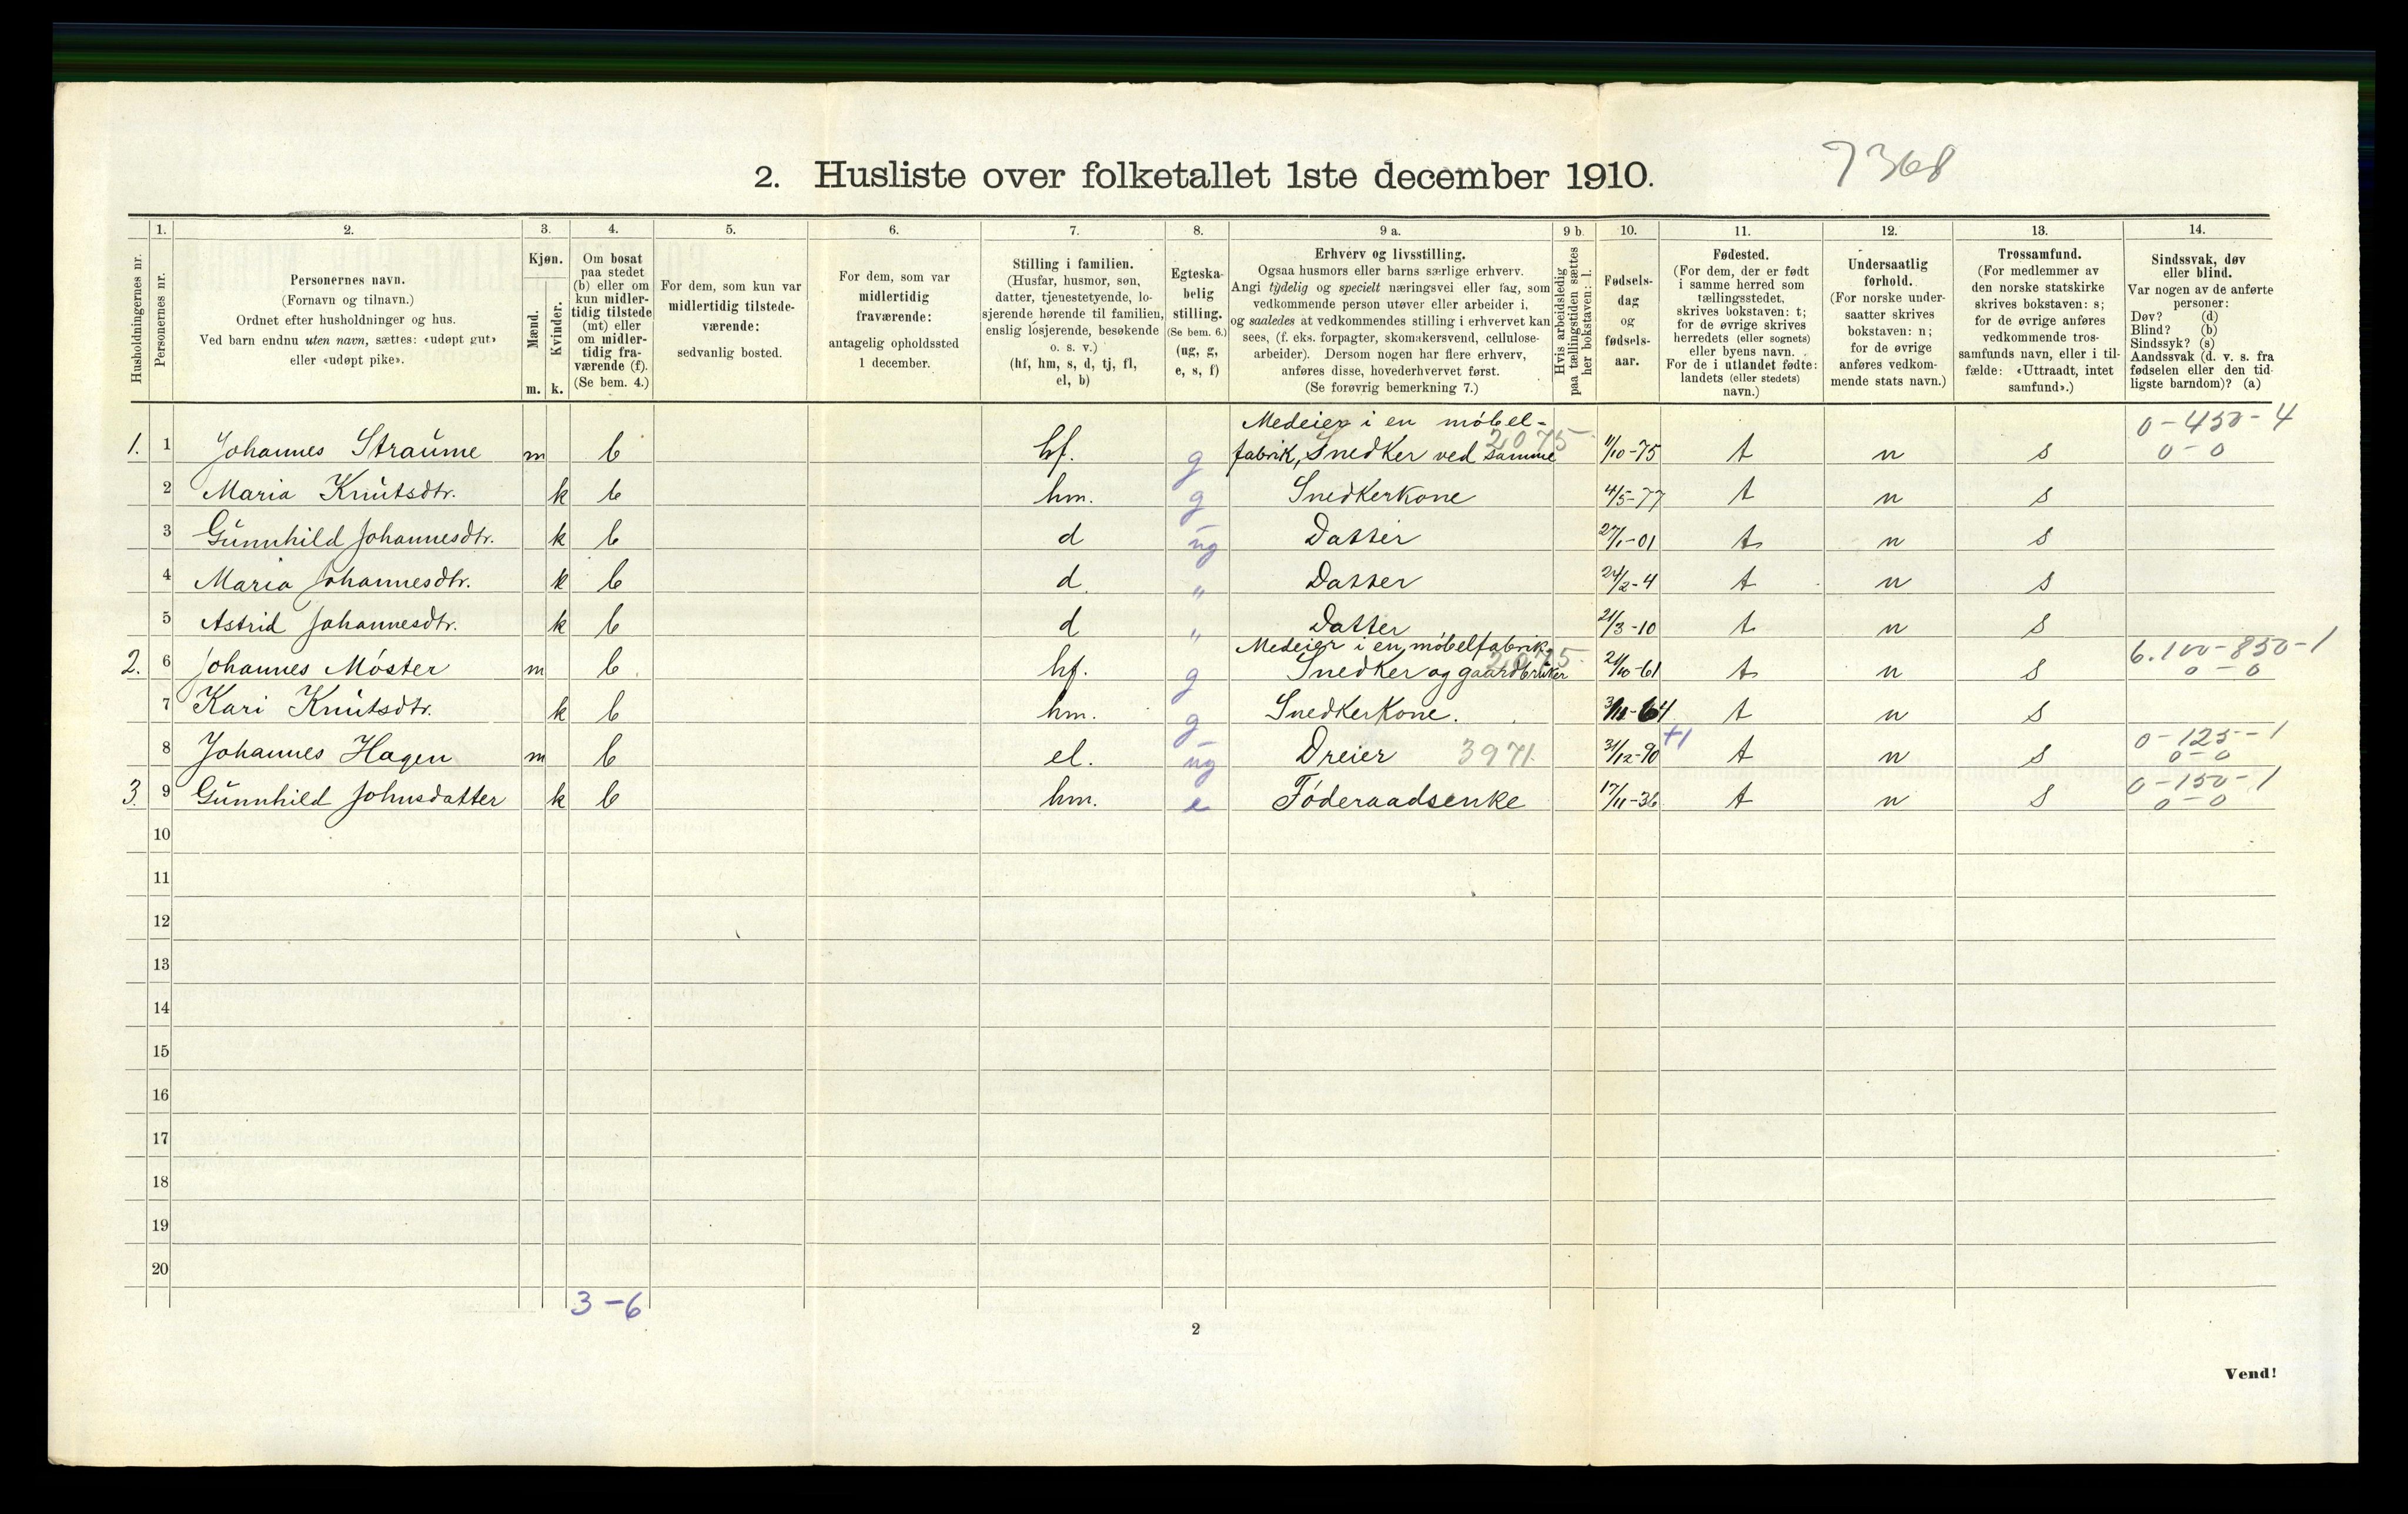 7368
2. Husliste over folketallet 1ste december 1910.
Husholdningernes nr.
1.
Personernes nr.
2.
Personernes navn.
(Fornavn og tilnavn.)
Ordnet efter husholdninger og hus.
Ved barn endnu uten navn, sættes: «udøpt gut»
eller «udøpt pike».
3.
Kjøn.
Mænd.
Kvinder.
m. k.
4.
Om bosat
paa stedet
(b) eller om
kun midler-
tidig tilstede
(mt) eller
om midler-
tidig fra-
værende (f).
(Se bem. 4.)
5.
For dem, som kun var
midlertidig tilstede-
værende:
sedvanlig bosted.
6.
For dem, som var
midlertidig
fraværende:
antagelig opholdssted
1 december.
7.
Stilling i familien.
(Husfar, husmor, søn,
datter, tjenestetyende, lo-
sjerende hørende til familien,
enslig losjerende, besøkende
o. s. v.)
(hf, hm, s, d, tj, fl,
el, b)
8.
Egteska-
belig
stilling.
(Se bem. 6.)
(ug, g,
e, s, f)
9 a.
Erhverv og livsstilling.
Ogsaa husmors eller barns særlige erhverv.
Angi tydelig og specielt næringsvei eller fag, som
vedkommende person utøver eller arbeider i,
og saaledes at vedkommendes stilling i erhvervet kan
sees, (f. eks. forpagter, skomakersvend, cellulose-
arbeider). Dersom nogen har flere erhverv,
anføres disse, hovederhvervet først.
(Se forøvrig bemerkning 7.)
9 b.
Hvis arbeidsledig
paa tællingstiden sættes
her bokstaven: l.
10.
Fødsels-
dag
og
fødsels-
aar.
11.
Fødested.
(For dem, der er født
i samme herred som
tællingsstedet,
skrives bokstaven: t;
for de øvrige skrives
herredets (eller sognets)
eller byens navn.
For de i utlandet fødte:
landets (eller stedets)
navn.)
12.
Undersaatlig
forhold.
(For norske under-
saatter skrives
bokstaven: n;
for de øvrige
anføres vedkom-
mende stats navn.)
13.
Trossamfund.
(For medlemmer av
den norske statskirke
skrives bokstaven: s;
for de øvrige anføres
vedkommende tros-
samfunds navn, eller i til-
fælde: «Uttraadt, intet
samfund».)
14.
Sindssvak, døv
eller blind.
Var nogen av de anførte
personer:
Døv? (d)
Blind? (b)
Sindssyk? (s)
Aandssvak (d. v. s. fra
fødselen eller den tid-
ligste barndom)? (a)
Medeier i en møbel-
0-450-4
1. 1 Johannes Straume m b hf. g fabrik, Snedker ved samme 2075 11/10-75 t n s 0-0
2 Maria Knutsdtr. k b hm. g Snedkerkone 4/5-77 t n s
3 Gunnhild Johannesdtr. k b d ug Datter 27/1-01 t n s
4 Maria Johannesdtr. k b d. " Datter 24/2-4 t n s
5 Astrid Johannesdtr. k b d " Datter 21/3-10 t n s
Medeier i en møbelfabrik,
6.100-850-1
2. 6 Johannes Møster m b hf. g Snedker og gaardbruker 2075 21/10-61 t n s 0-0
7 Kari Knutsdtr. k b hm. g Snedkerkone. 3/11-64 t n s
0-125-1
8 Johannes Hagen m b el. ug Dreier 3971 31/12-90 +1 t n s 0-0
0-150-1
3. 9 Gunnhild Johnsdatter k b hm. e Føderaadsenke 17/11-36 t n s 0-0
10
11
12
13
14
15
16
17
18
19
20
3-6
2
Vend!